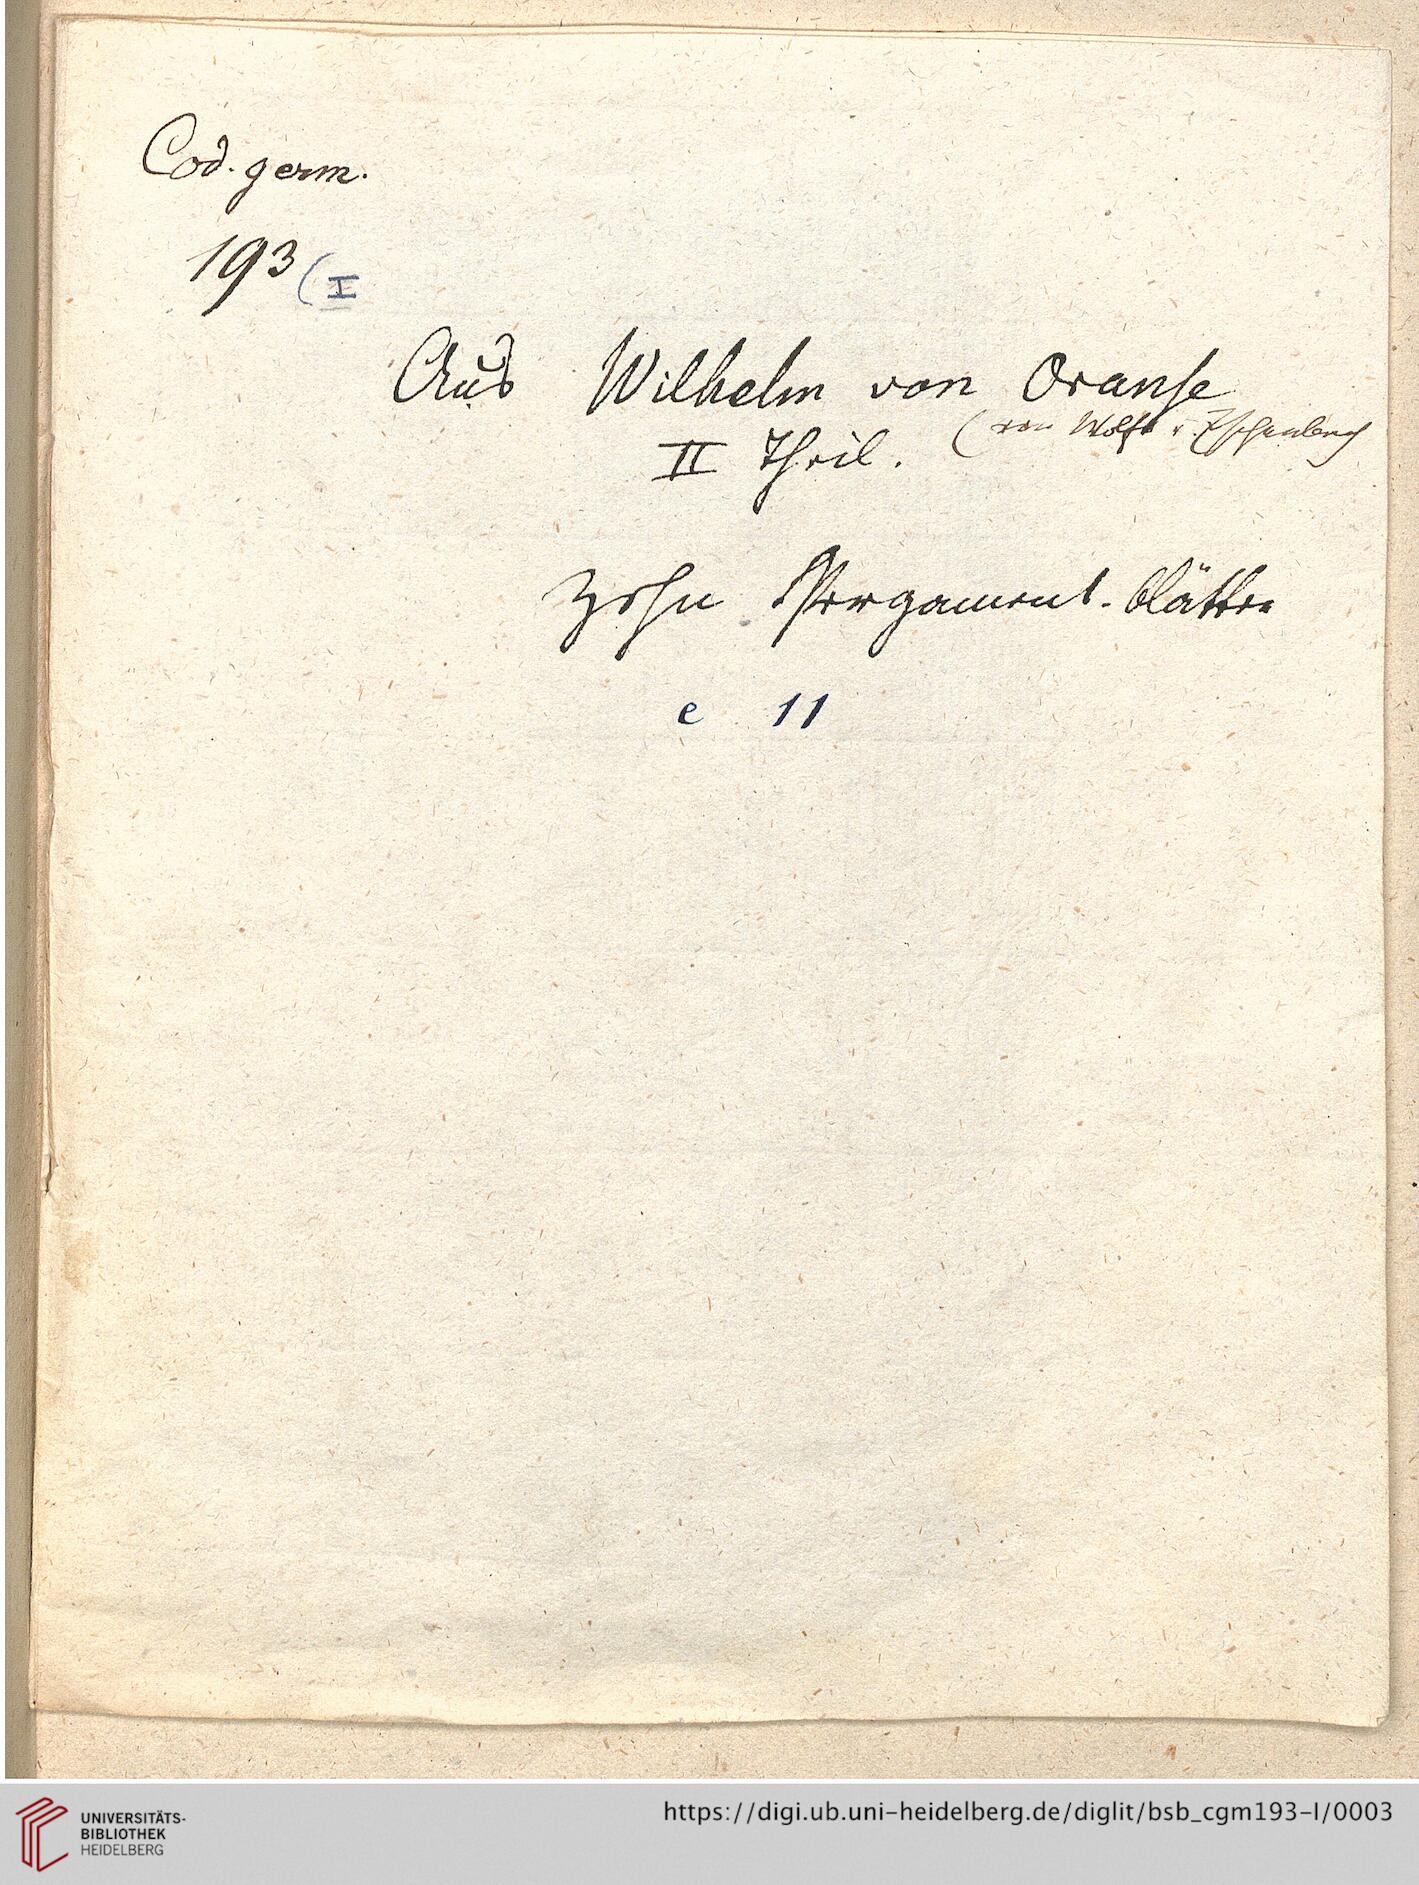 Cod. germ.
193 (I
Aus Wilhelm von Oranse
(von Wolfr. v. Eschenbach
II Theil.
Zehn Pergament-blätter
e 11
https://digi.ub.uni-heidelberg.de/diglit/bsb_cgm193-I/0003
UNIVERSITÄTS-
BIBLIOTHEK
HEIDELBERG